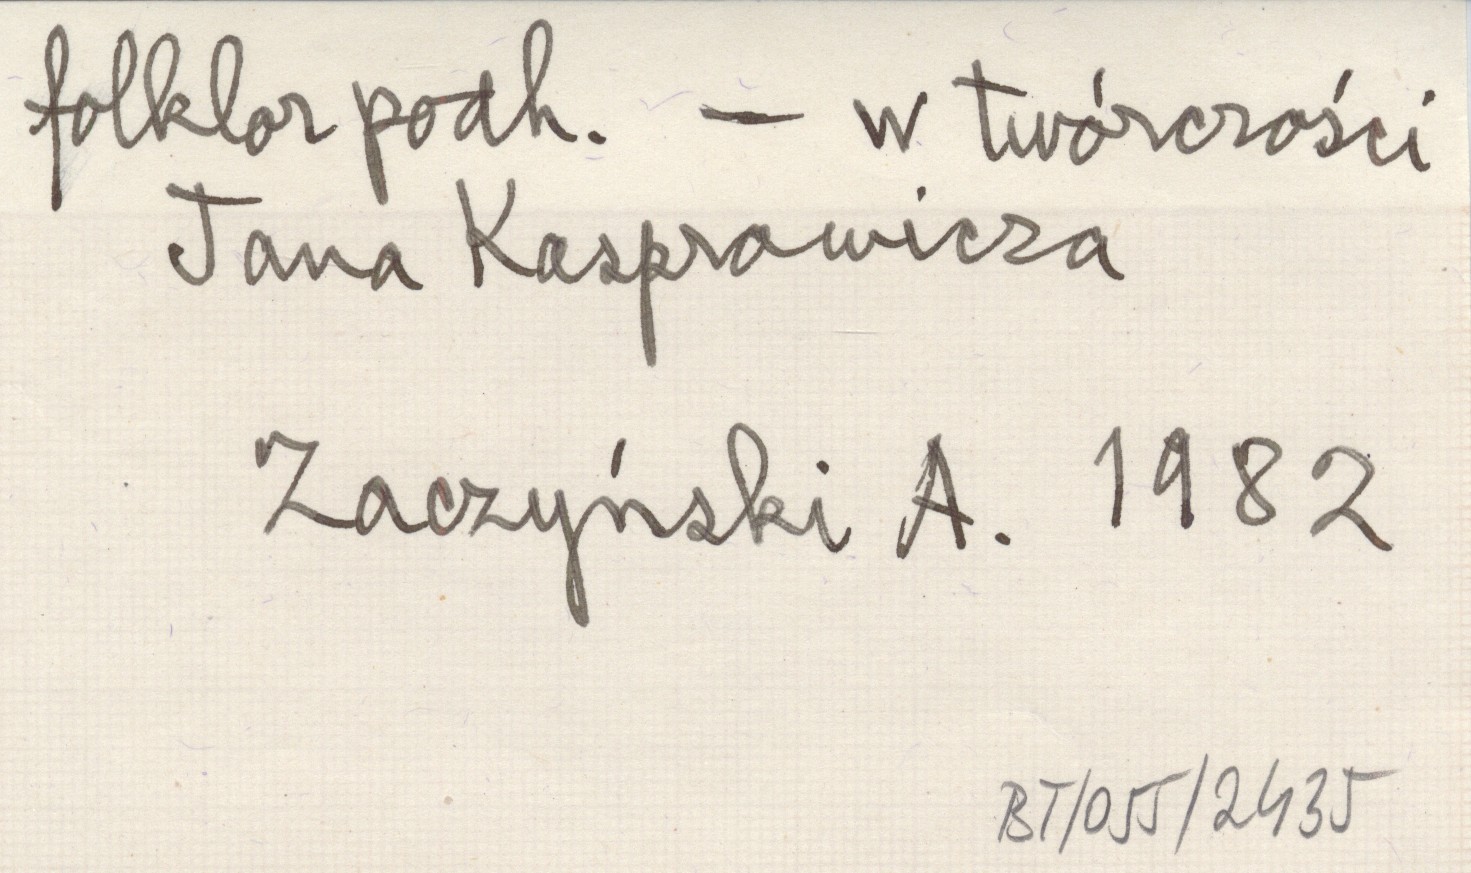 folklor podh. — w twórczości
Jana Kasprowicza
Zaczyński A. 1982
BT/055/2435